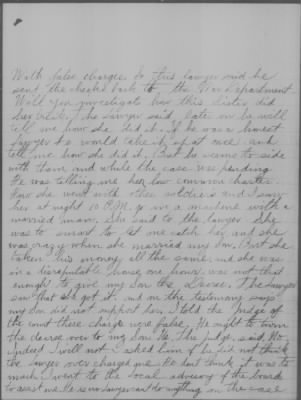 With false charges. So this lawyer said he
sent the checks back to the War Department
Will you investigate how this sister did
her vile. The lawyer said, later on he will
tell me how she did it. If he was a honest
lawyer he would take it up at once and
tell me how she did it. But he seems to side
with them and while the case was pending
He was telling me her low common character.
How she went with other soldiers and I saw
her at night 10 P.M. go in a machine with a
married man. She said to the lawyer She
was to smart to let one catch her, and she
was crazy when she married my Son. But she
taken his money all the same, and she was
in a disreputable house one hour was not that
enough to give my Son the Decree. The lawyer
saw that she got it. and in the testimony says
my Son did not support her. I told the Judge of
the court these charges were false. He ought to turn
the decree over to my Son. The Judge said, No
indeed I will not. I asked him if he did not think
the lawyer over charged me. He dont think it was to
much. I went to the local advisory of the board
to assist me. He is no lawyer cant do anything in the case